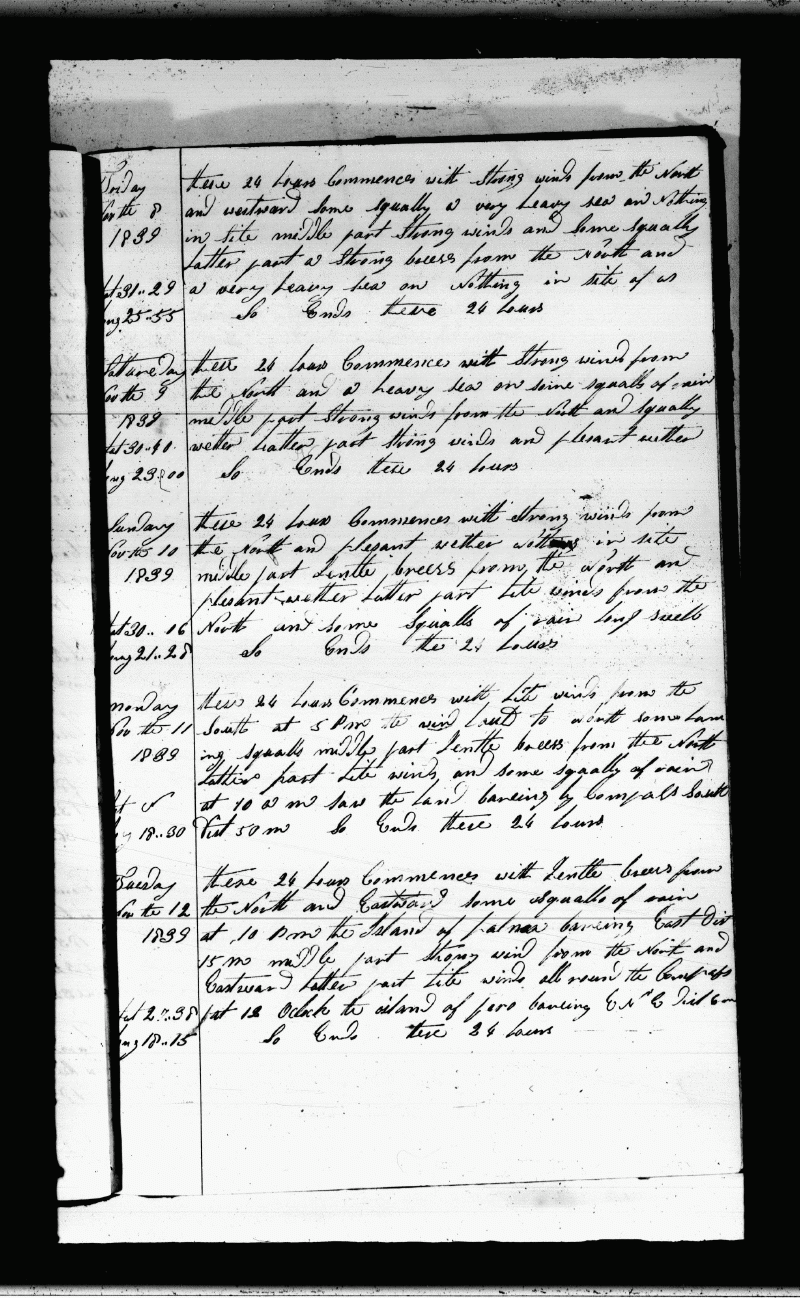 Friday
Nov the 8
1839
Lat 31..29
Long 25..55
these 24 hours Commences with Strong winds from the North
and westward some squally a very heavy sea on Nothing
in site middle part Strong winds and Some squally
Latter part a Strong breess from the North and
a very heavy sea on Nothing in site of us
So Ends these 24 hours
Satureday
Nov the 9
1839
Lat 30..40
Long 23..00
these 24 hours Commences with Strong winds from
the North and a heavy sea on some squalls of rain
meddle part Strong winds from the North and squally
wether Latter part strong winds and plesant wether
So Ends these 24 hours
Sunday
Nov the 10
1839
Lat 30..16
Long 21..28
these 24 hours Commences with strong winds from
the North and plesant wether in site
middle part Jentle breess from the North and
plesant wether Latter part Lite winds from the
North and some Squalls of rain long swell
So Ends the 24 hours
monday
Nov the 11
1839
Lat N
Long 18..30
these 24 hours Commences with Lite winds from the
South at 5 P m the wind to North some
squalls middle part Jentle breess from the North
Latter part Lite winds and some squally of rain
at 10 a m saw the Land bareing by Compass South
Dist 50 m So Ends these 24 hours
Tuesday
Nov the 12
1839
Lat 27..38
Long 18..15
these 24 hours Commences with Jentle breess from
the North and Eastward some squalls of rain
at 10 P m the Island of palmar bareing East Dis
15 m middle part Strong wind from the North and
Eastward Latter part Lite winds all round the Compass
at 12 Oclock the island of fero bareing E N E Dist 6 m
So Ends these 24 hours